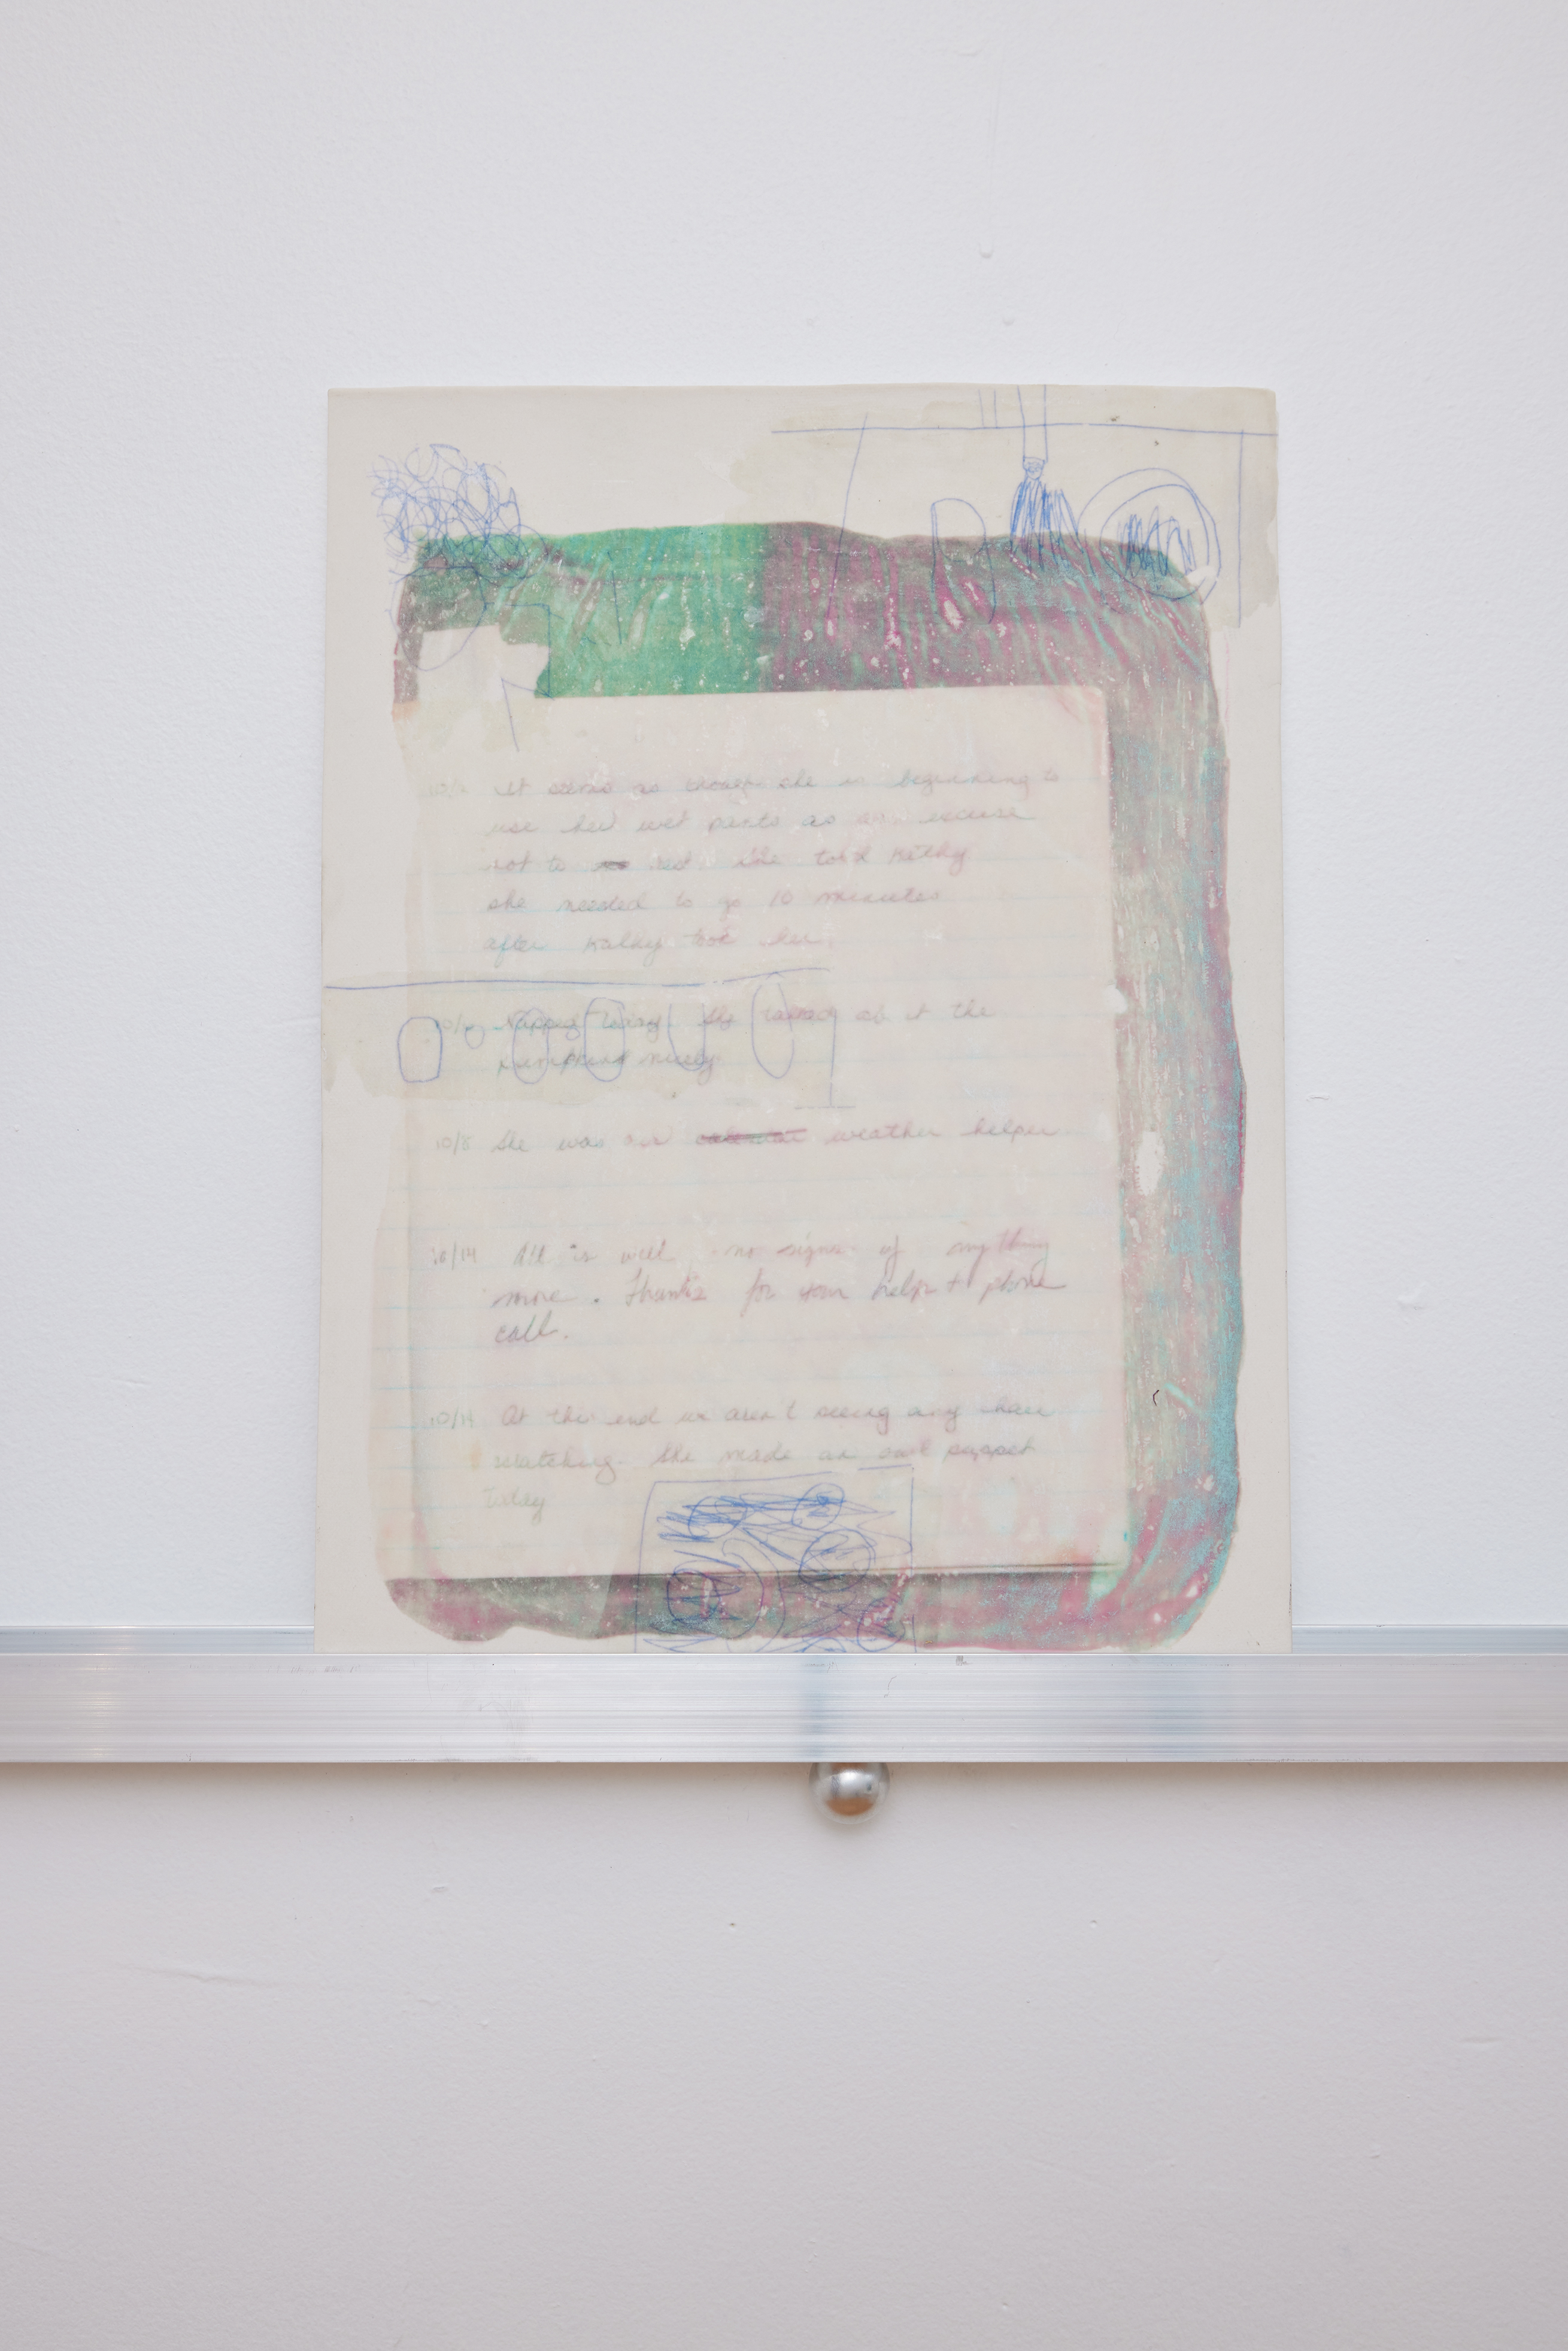 It seems as though she is beginning to
use her wet pants as an excuse
not to rest. She told Kathy
she needed to go 10 minutes
after Kathy took her.
Happy today. She the
pumpkins nicely
10/8 She was our calendar weather helper
10/14 All is well, no signs of anything
more. Thanks for your help + phone
call.
10/14 At this end we aren't seeing any hair
She made an owl puppet
today